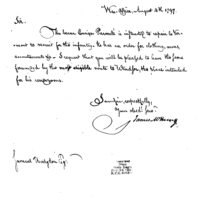 War-Office, August 4th 1797.
Sir.
The bearer Ensign is instructed to repair to
to recruit for the infantry. He has an order for clothing, arms
accoutrements &c. I request that you will be pleased to have the same
forwarded by the most eligible route to Windsor, the place intended
for his rendezvous.
I am Sir, respectfully,
Your obedt. servt.
James McHenry
Samuel Hodgdon Esqr.